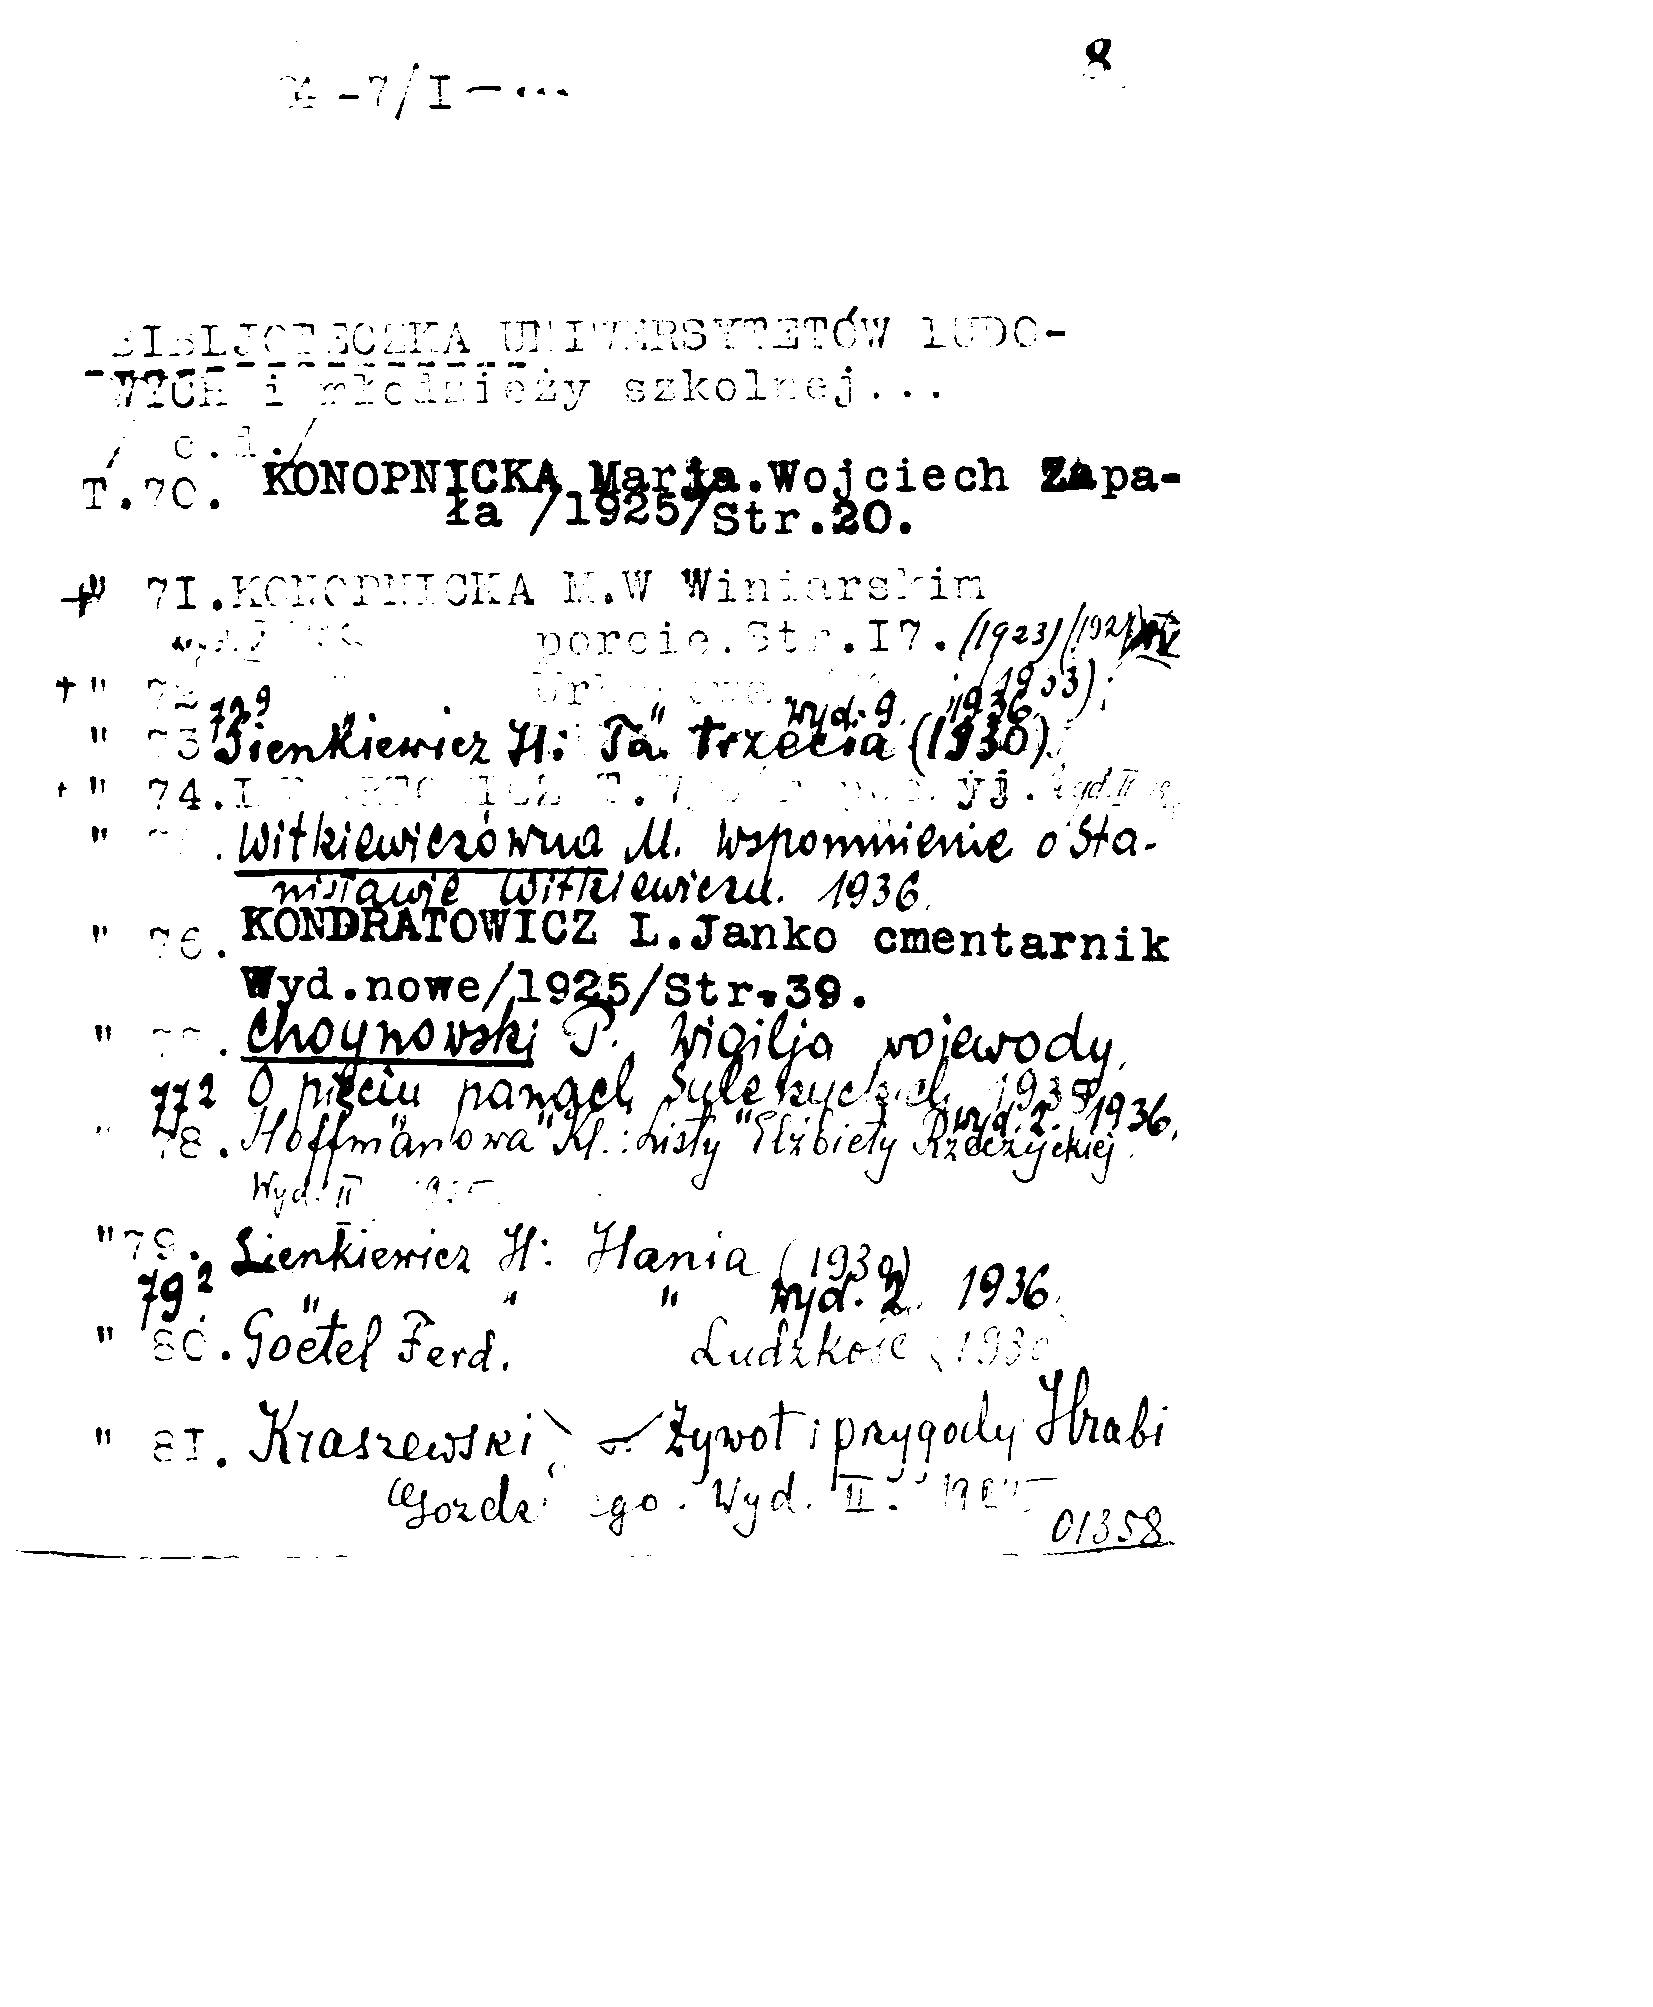 8
-7/I — ...
BIBLJOTECZKA UNIWERSYTETÓW LUDO-
WYCH i młodzieży szkolnej...
/ c.d./
T.70. KONOPNICKA Marja.Wojciech Zapa-
ła /1925/Str.20.
+" 71.KONOPNICKA M.W Winiarskim
porcie.Str.I7. (1923)
+ " 72 (1933);
72 9 " wyd. 9. 1936.
" 73 Sienkiewicz H: Ta trzecia (1930)
+ " 74. wyd. II
" . Witkiewiczówna M. Wspomnienie o Sta-
nisławie Witkiewiczu. 1936.
" 76. KONDRATOWICZ L.Janko cmentarnik
Wyd.nowe/1925/Str.39.
" . Choynowski P. Wigilja wojewody.
O pięciu panach Sulerzyckich
77 2 " " wyd. 2. 1936.
" 78. Hoffmanowa Kl.: Listy Elżbiety Rzeczyckiej.
Wyd. II
" 79. Sienkiewicz H: Hania (1930)
79 2 " " " wyd. 2. 1936.
" 80. Goetel Ferd. Ludzkość (1930
" 81. Kraszewski Żywot i przygody Hrabi
Wyd. II.
01358